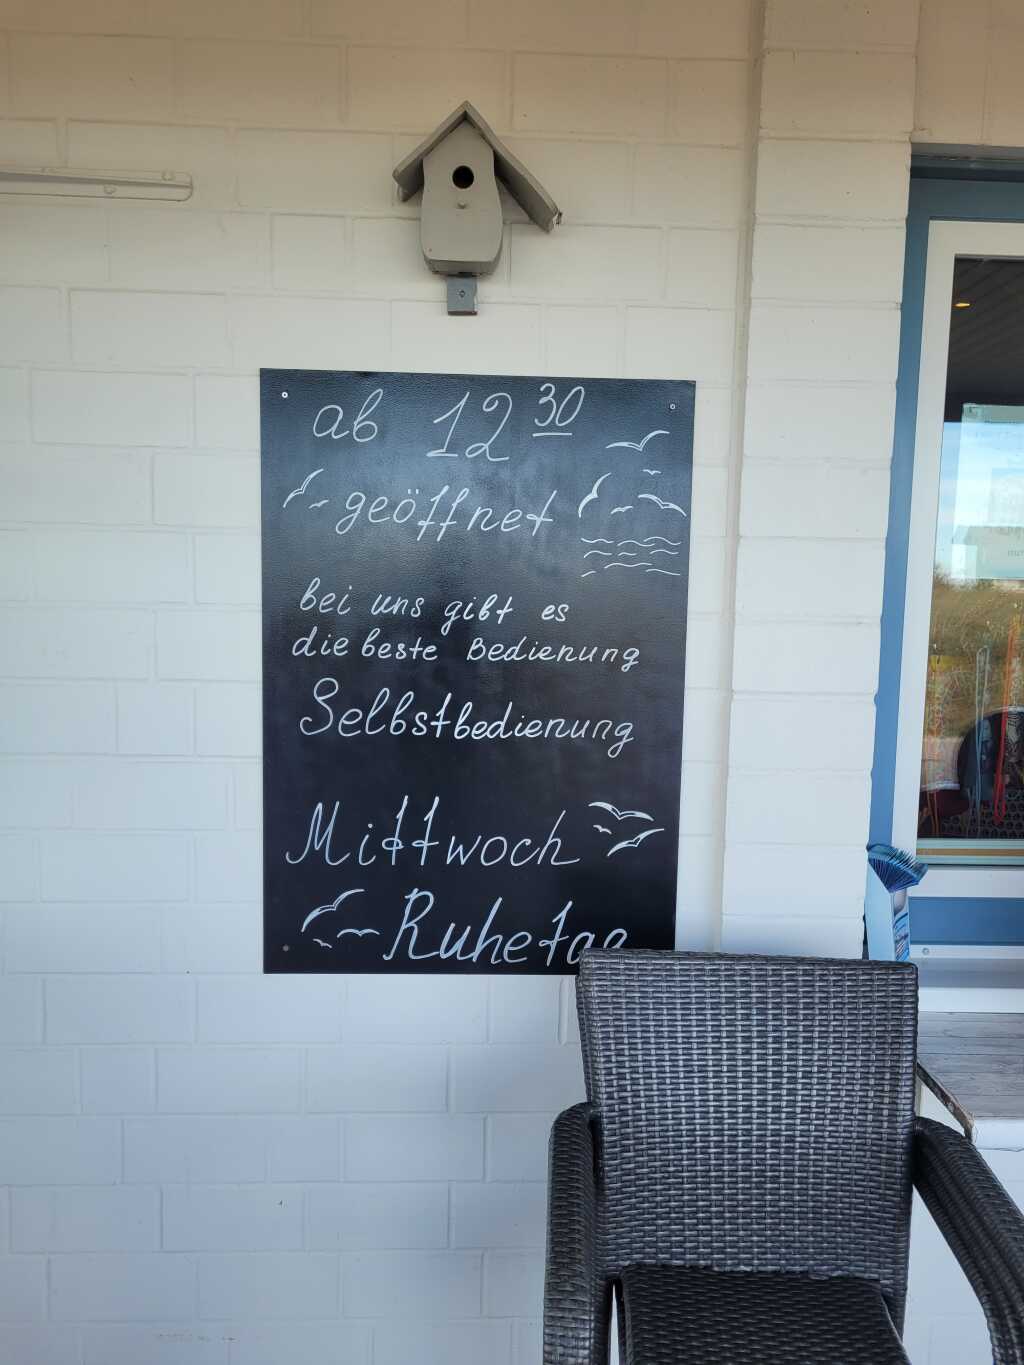 ab 12 30
geöffnet
bei uns gibt es
die beste Bedienung
Selbstbedienung
Mittwoch
Ruhetag